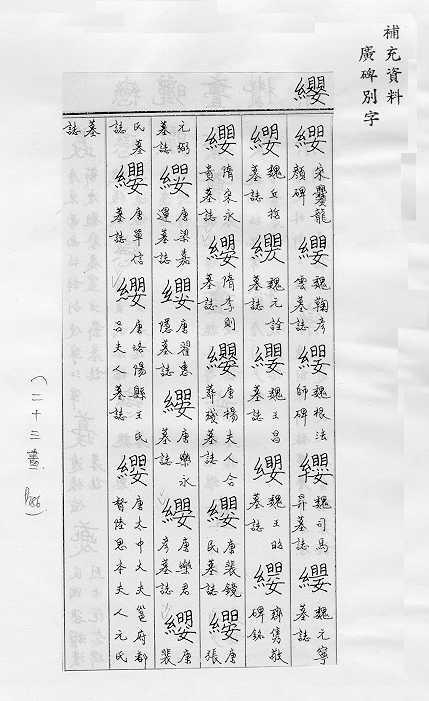 補充資料
廣碑別字
纓
纓 宋爨龍顏碑 纓 魏鞠彥雲墓誌 纓 魏根法師碑 纓 魏司馬昇墓誌 纓 魏元寧墓誌
纓 魏丘哲墓誌 纓 魏元詮墓誌 纓 魏王昌墓誌 纓 魏王 墓誌 纓 齊雋敬碑銘
纓 隋宋永貴墓誌 纓 隋李則墓誌 纓 唐楊夫人合葬殘墓誌 纓 唐裴鏡民墓誌 纓 唐張
元弼墓誌 纓 唐梁嘉運墓誌 纓 唐翟惠隱墓誌 纓 唐樂永墓誌 纓 唐樂君彥墓誌 纓 唐裴
氏墓誌 纓 唐單信墓誌 纓 唐洛陽縣王氏呂夫人墓誌 纓 唐太中大夫邕府都督陸思本夫人元氏
墓誌
(二十三畫 P286)